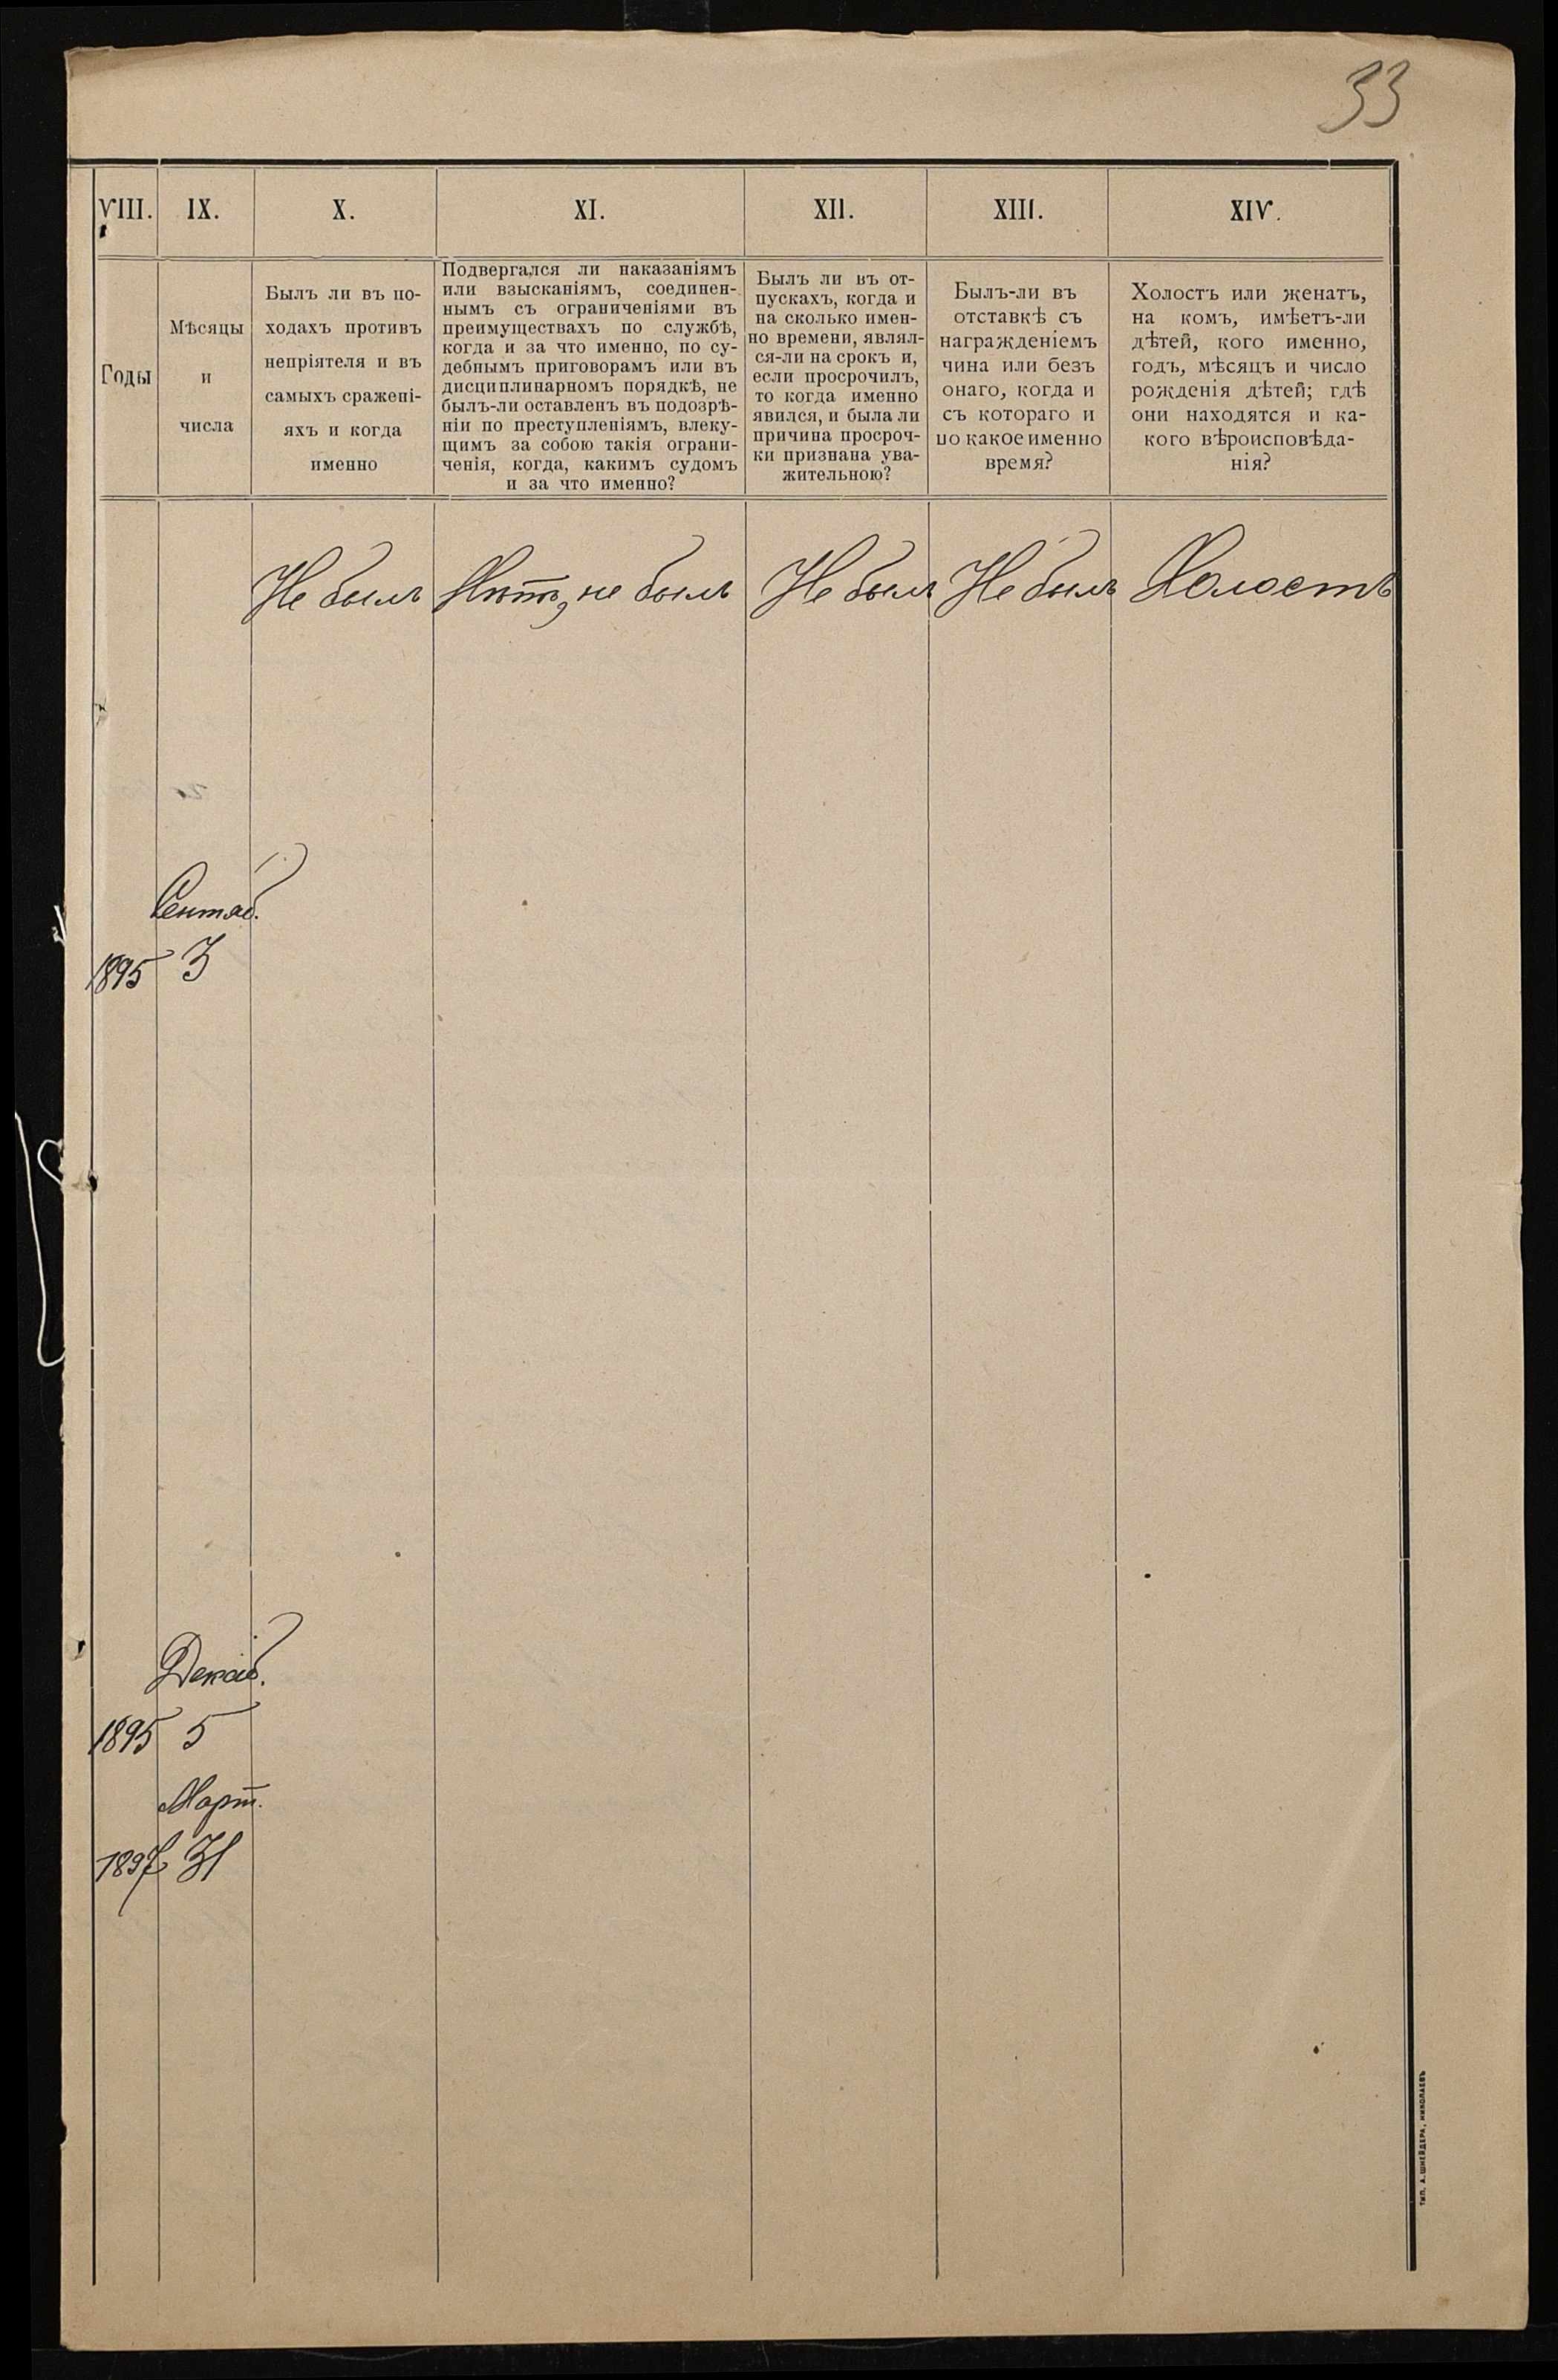 33
VIII. IX. X. XI. XII. XIII. XIV.
Годы
Мѣсяцы
и
числа
Былъ ли въ по-
ходахъ противъ
непріятеля и въ
самыхъ сражені-
яхъ и когда
именно
Подвергался ли наказаніямъ
или взысканіямъ, соединен-
нымъ съ ограниченіями въ
преимуществахъ по службѣ,
когда и за что именно, по су-
дебнымъ приговорамъ или въ
дисциплинарномъ порядкѣ, не
былъ-ли оставленъ въ подозрѣ-
ніи по преступленіямъ, влеку-
щимъ за собою такія ограни-
ченія, когда, какимъ судомъ
и за что именно?
Былъ ли въ от-
пускахъ, когда и
на сколько имен-
но времени, являл-
ся-ли на срокъ и,
если просрочилъ,
то когда именно
явился, и была ли
причина просроч-
ки признана ува-
жительною?
Былъ-ли въ
отставкѣ съ
награжденіемъ
чина или безъ
онаго, когда и
съ котораго и
по какое именно
время?
Холостъ или женатъ,
на комъ, имѣетъ-ли
дѣтей, кого именно,
годъ, мѣсяцъ и число
рожденія дѣтей; гдѣ
они находятся и ка-
кого вѣроисповѣда-
нія?
Не былъ Нѣтъ, не былъ Не былъ Не былъ Холостъ
Сентяб.
1895 3
Декаб.
1895 5
Март.
1897 31
ТИП. А. ШНЕЙДЕРА, НИКОЛАЕВЪ